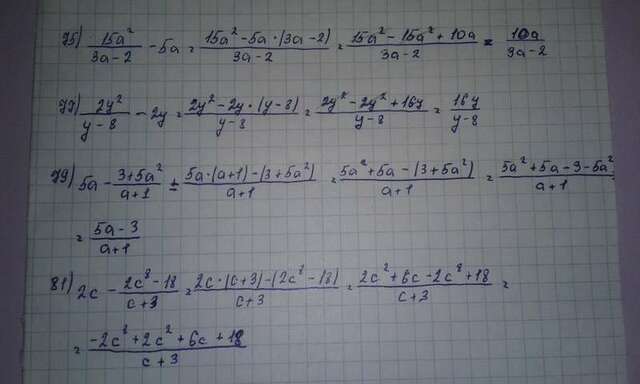 75) 15a²/3a-2 - 5a = 15a²-5a·(3a-2)/3a-2 = 15a²-15a²+10a/3a-2 = 10a/3a-2
77) 2y²/y-8 - 2y = 2y²-2y·(y-8)/y-8 = 2y²-2y²+16y/y-8 = 16y/y-8
79) 5a - 3+5a²/a+1 = 5a·(a+1)-(3+5a²)/a+1 = 5a²+5a-(3+5a²)/a+1 = 5a²+5a-3-5a²/a+1
= 5a-3/a+1
81) 2c - 2c²-18/c+3 = 2c·(c+3)-(2c²-18)/c+3 = 2c²+6c-2c²+18/c+3 =
= -2c²+2c²+6c+18/c+3